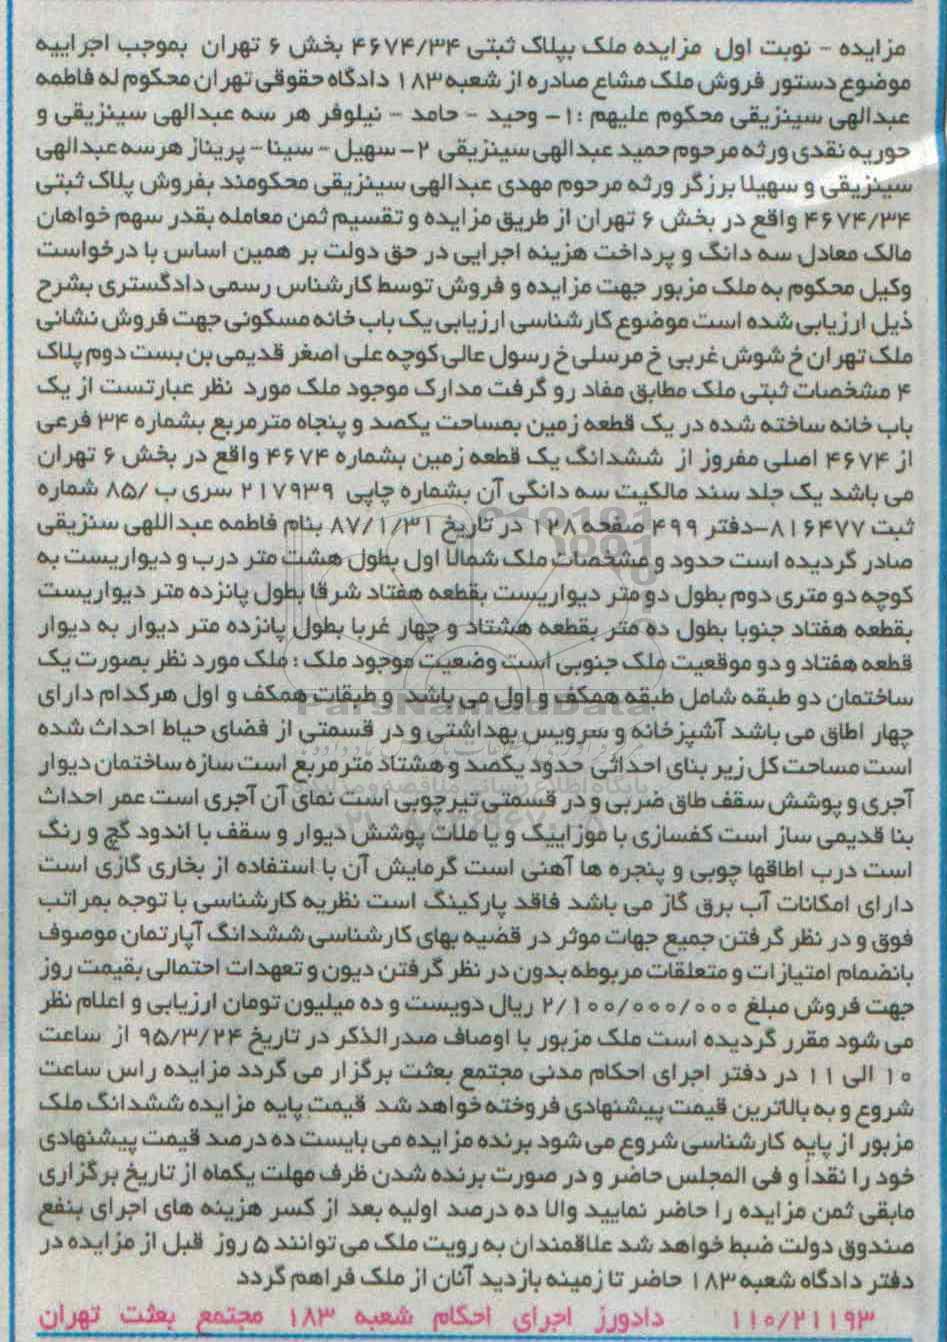 مزایده - نوبت اول مزایده ملک بپلاک ثبتی ۴۶۷۴/۳۴ بخش ۶ تهران بموجب اجراییه
موضوع دستور فروش ملک مشاع صادره از شعبه ۱۸۳ دادگاه حقوقی تهران محکوم له فاطمه
عبدالهی سینزیقی محکوم علیهم :۱- وحید - حامد - نیلوفر هر سه عبدالهی سینزیقی و
حوریه نقدی ورثه مرحوم حمید عبدالهی سینزیقی ۲- سهیل - سینا - پریناز هرسه عبدالهی
سینزیقی و سهیلا برزگر ورثه مرحوم مهدی عبدالهی سینزیقی محکومند بفروش پلاک ثبتی
۴۶۷۴/۳۴ واقع در بخش ۶ تهران از طریق مزایده و تقسیم ثمن معامله بقدر سهم خواهان
مالک معادل سه دانگ و پرداخت هزینه اجرایی در حق دولت بر همین اساس با درخواست
وکیل محکوم به ملک مزبور جهت مزایده و فروش توسط کارشناس رسمی دادگستری بشرح
ذیل ارزیابی شده است موضوع کارشناسی ارزیابی یک باب خانه مسکونی جهت فروش نشانی
ملک تهران خ شوش غربی خ مرسلی خ رسول عالی کوچه علی اصغر قدیمی بن بست دوم پلاک
۴ مشخصات ثبتی ملک مطابق مفاد رو گرفت مدارک موجود ملک مورد نظر عبارتست از یک
باب خانه ساخته شده در یک قطعه زمین بمساحت یکصد و پنجاه مترمربع بشماره ۳۴ فرعی
از ۴۶۷۴ اصلی مفروز از ششدانگ یک قطعه زمین بشماره ۴۶۷۴ واقع در بخش ۶ تهران
می باشد یک جلد سند مالکیت سه دانگی آن بشماره چاپی ۲۱۷۹۳۹ سری ب /۸۵ شماره
ثبت ۸۱۶۴۷۷-دفتر ۴۹۹ صفحه ۱۲۸ در تاریخ ۸۷/۱/۳۱ بنام فاطمه عبداللهی سنزیقی
صادر گردیده است حدود و مشخصات ملک شمالا اول بطول هشت متر درب و دیواریست به
کوچه دو متری دوم بطول دو متر دیواریست بقطعه هفتاد شرقا بطول پانزده متر دیواریست
بقطعه هفتاد جنوبا بطول ده متر بقطعه هشتاد و چهار غربا بطول پانزده متر دیوار به دیوار
قطعه هفتاد و دو موقعیت ملک جنوبی است وضعیت موجود ملک : ملک مورد نظر بصورت یک
ساختمان دو طبقه شامل طبقه همکف و اول می باشد و طبقات همکف و اول هرکدام دارای
چهار اطاق می باشد آشپزخانه و سرویس بهداشتی و در قسمتی از فضای حیاط احداث شده
است مساحت کل زیر بنای احداثی حدود یکصد و هشتاد مترمربع است سازه ساختمان دیوار
آجری و پوشش سقف طاق ضربی و در قسمتی تیرچوبی است نمای آن آجری است عمر احداث
بنا قدیمی ساز است کفسازی با موزاییک و یا ملات پوشش دیوار و سقف با اندود گچ و رنگ
است درب اطاقها چوبی و پنجره ها آهنی است گرمایش آن با استفاده از بخاری گازی است
دارای امکانات آب برق گاز می باشد فاقد پارکینگ است نظریه کارشناسی با توجه بمراتب
فوق و در نظر گرفتن جمیع جهات موثر در قضیه بهای کارشناسی ششدانگ آپارتمان موصوف
بانضمام امتیازات و متعلقات مربوطه بدون در نظر گرفتن دیون و تعهدات احتمالی بقیمت روز
جهت فروش مبلغ ۲/۱۰۰/۰۰۰/۰۰۰ ریال دویست و ده میلیون تومان ارزیابی و اعلام نظر
می شود مقرر گردیده است ملک مزبور با اوصاف صدرالذکر در تاریخ ۹۵/۳/۲۴ از ساعت
۱۰ الی ۱۱ در دفتر اجرای احکام مدنی مجتمع بعثت برگزار می گردد مزایده راس ساعت
شروع و به بالاترین قیمت پیشنهادی فروخته خواهد شد قیمت پایه مزایده ششدانگ ملک
مزبور از پایه کارشناسی شروع می شود برنده مزایده می بایست ده درصد قیمت پیشنهادی
خود را نقداً و فی المجلس حاضر و در صورت برنده شدن ظرف مهلت یکماه از تاریخ برگزاری
مابقی ثمن مزایده را حاضر نمایید والا ده درصد اولیه بعد از کسر هزینه های اجرای بنفع
صندوق دولت ضبط خواهد شد علاقمندان به رویت ملک می توانند ۵ روز قبل از مزایده در
دفتر دادگاه شعبه ۱۸۳ حاضر تا زمینه بازدید آنان از ملک فراهم گردد
۱۱۰/۲۱۱۹۳ دادورز اجرای احکام شعبه ۱۸۳ مجتمع بعثت تهران
ParsNamadData